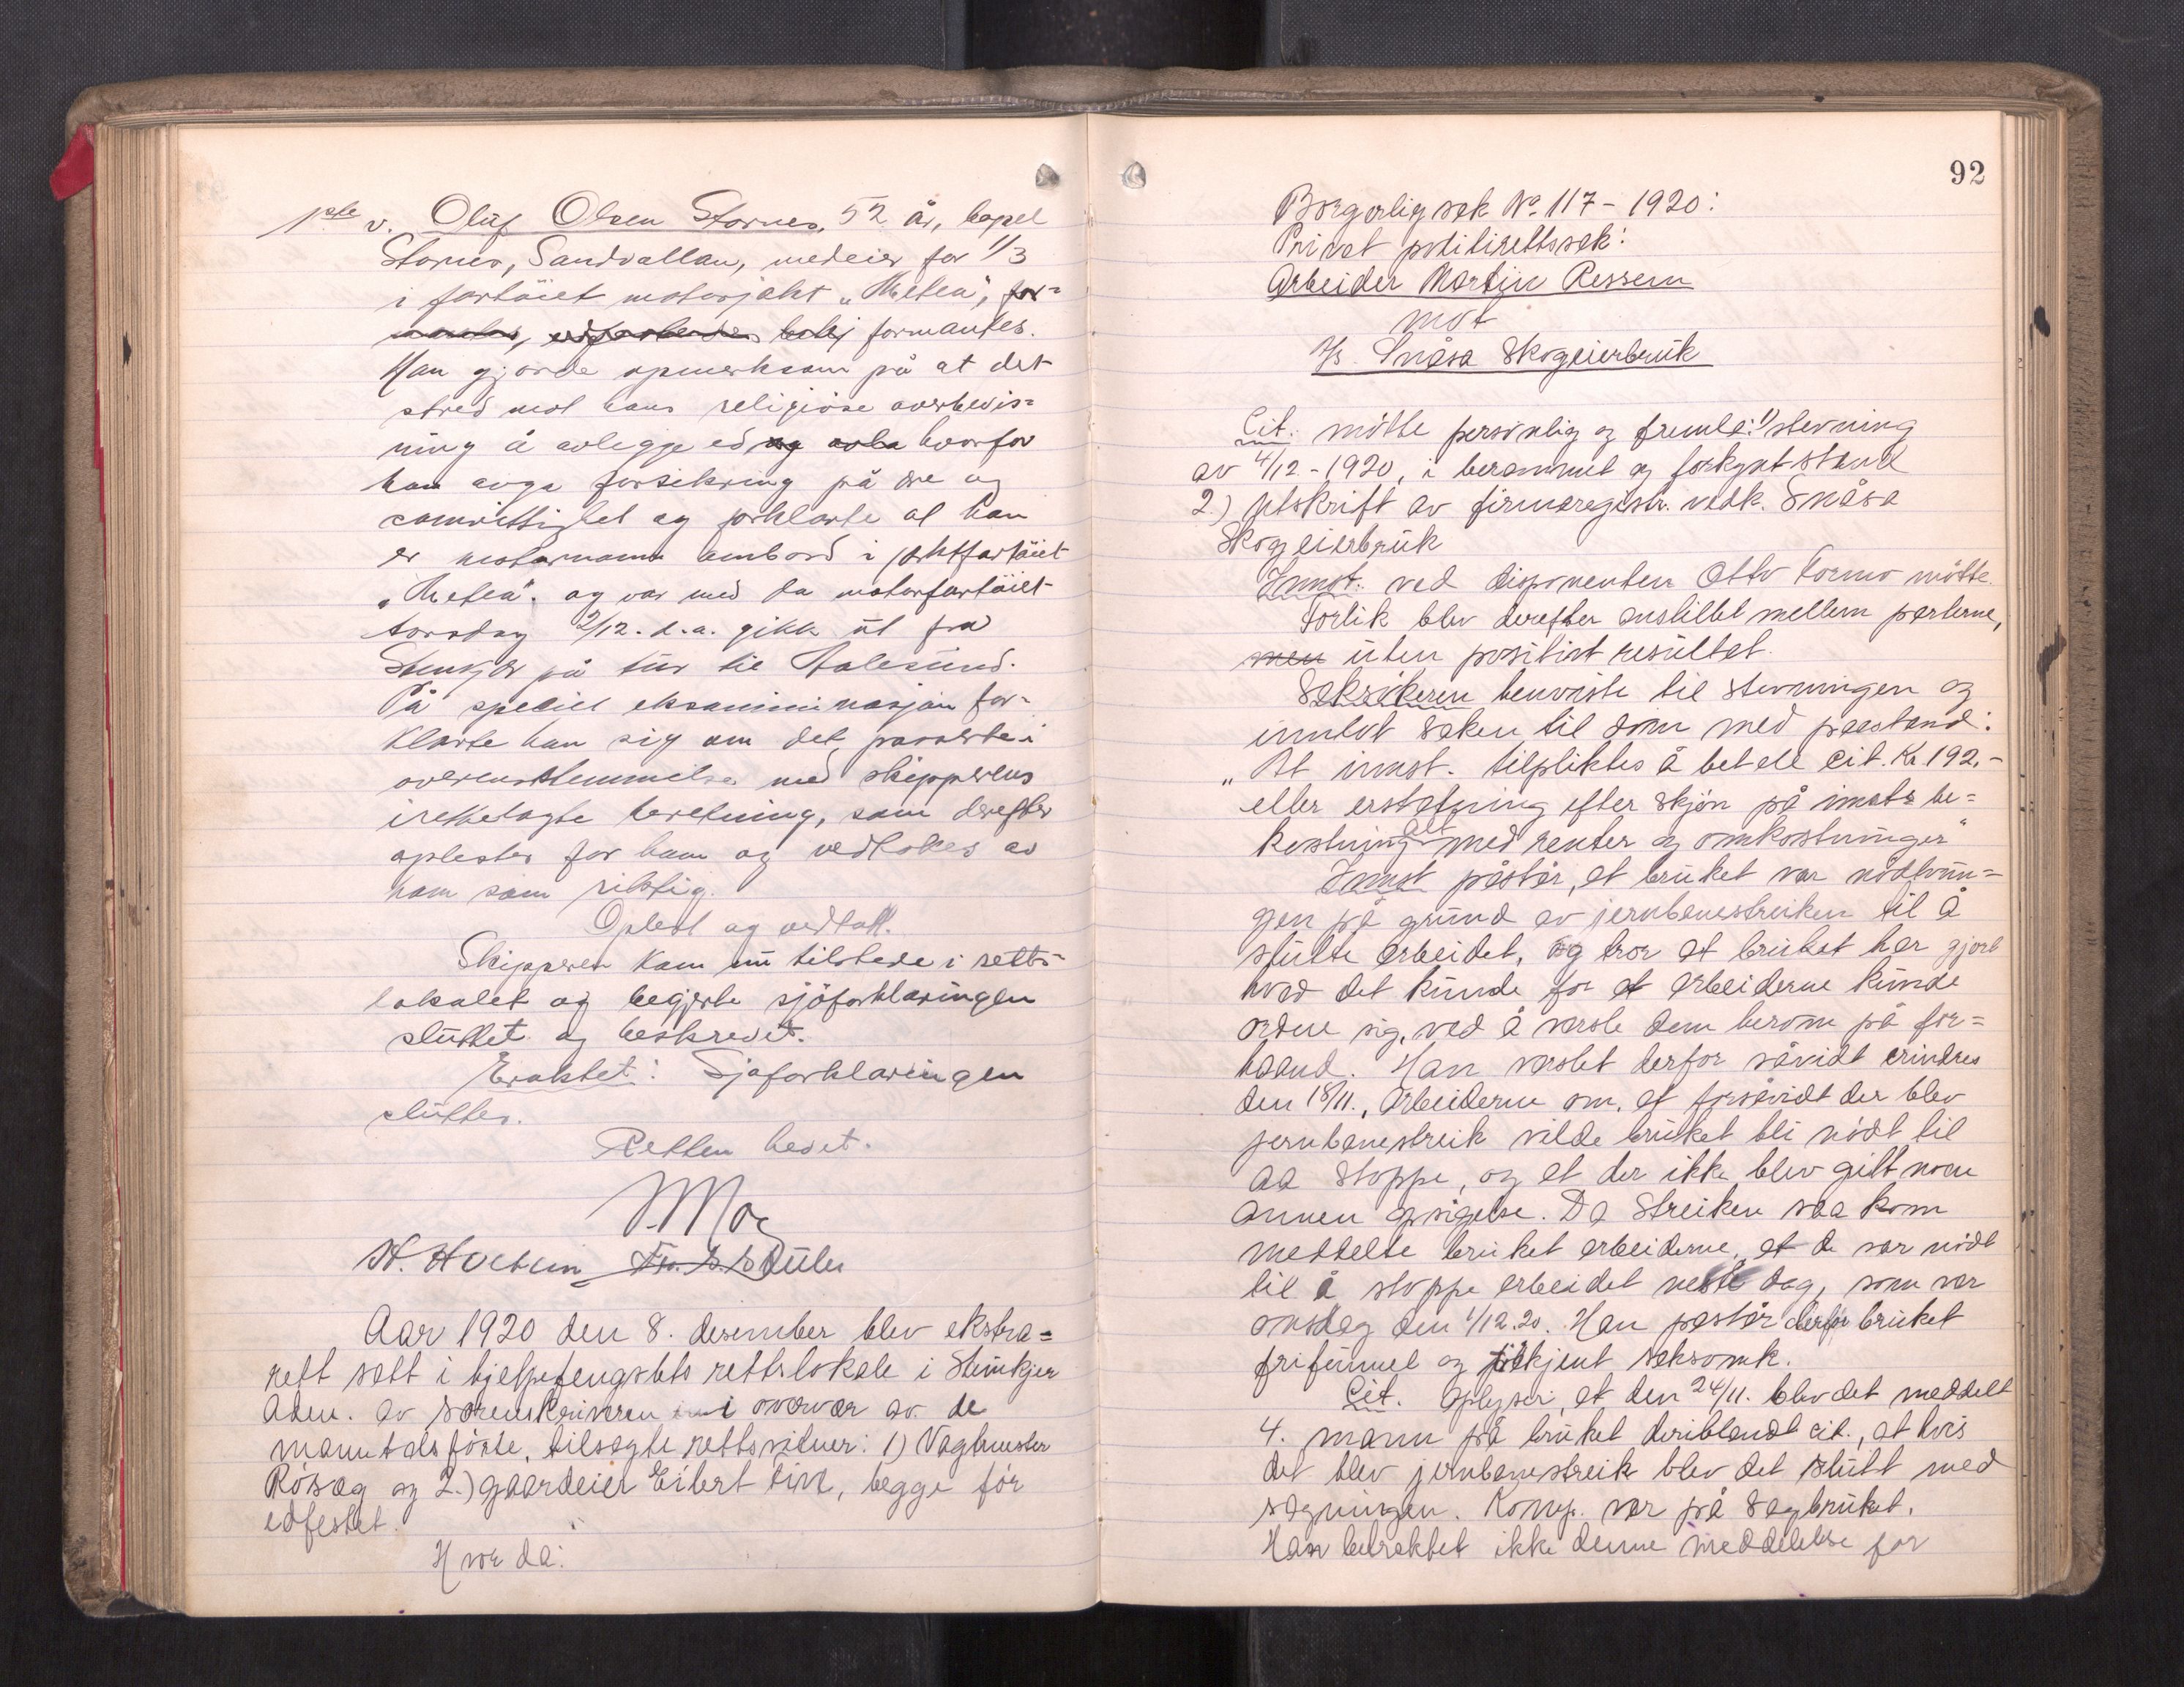 1ste v. Oluf Olsen Stornes, 52 år, bopel
Stornes, Sandvollan, medeier for 1/3
i fartöiet motorjakt „Thetea", for-
formantes.
Han gjorde opmerksom på at det
stred mot hans religiöse overbevis-
ning å avlegge ed hvorfor
han avga forsikring på ære og
samvittighet og forklarte at han
er motormann ombord i jaktfartöiet
„Thetea". og var med da motorfartöiet
torsdag 2/12. d.a. gikk ut fra
Stenkjær på tur til Aalesund.
På speciel eksaminasjon for-
klarte han sig om det passerte i
overensstemmelse med skipperens
irettelagte beretning, som derefter
oplestes for ham og vedtokes av
ham som riktig.
Oplest og vedtatt.
Skipperen kom nu tilstede i retts-
lokalet og begjærte sjöforklaringen
sluttet og beskrevet.
Eraktet: Sjøforklaringen
sluttes.
Retten hevet.
Aar 1920 den 8. desember blev ekstra-
rett satt i hjelpefengslets rettslokale i Steinkjer
Adm. av sorenskriveren i overvær av de
manntalsførte, tilsagte rettsvitner: 1) Vagtmester
Rösæg og 2.) gaardeier Eilert Five, begge før
edfestet.
Hvor da:
92
Borgerlig sak No. 117 - 1920:
Privat politirettssak:
Arbeider Martin Ressem
mot
I/s. Snåsa Skogeierbruk
Cit. mötte personlig og fremla: 1) stevning
av 4/12 - 1920, i berammet og forkynt stand
2.) Utskrift av firmaregistr. vedk. Snåsa
Skogeierbruk
Innst. ved disponenten Otto Formo mötte.
Forlik blev derefter anstillet mellem parterne,
men uten positivt resultat.
Saksökeren henviste til stevningen og
innlot saken til dom med paastand:
„At innst. tilpliktes å betale cit. Kr. 192.-
eller erstatning efter skjön på innsts be-
kostning alt med renter og omkostninger"
Innst påstår, at bruket var nödtvun-
gen på grund av jernbanestreiken til å
slutte arbeidet, og tror at bruket har gjort
hvad det kunde for at arbeiderne kunde
ordne sig, ved å varsle dem herom på for-
haand. Han varslet derfor såvidt erindres
den 18/11., arbeiderne om, at forsåvidt der blev
jernbanestreik vilde bruket bli nödt til
aa stoppe, og at der ikke blev gitt noen
annen opsigelse. Da Streiken saa kom
meddelte bruket arbeiderne, at de var nödt
til å stoppe arbeidet neste dag, som var
onsdag den 1/12.20. Han påstår derfor bruket
frifunnet og tilkjent saksomk.
Cit. oplyser, at den 24/11. blev det meddelt
4. mann på bruket deriblandt cit., at hvis
det blev jernbanestreik blev det slutt med
sagningen. Komp. var på sagbruket.
Han betraktet ikke denne meddelelse for